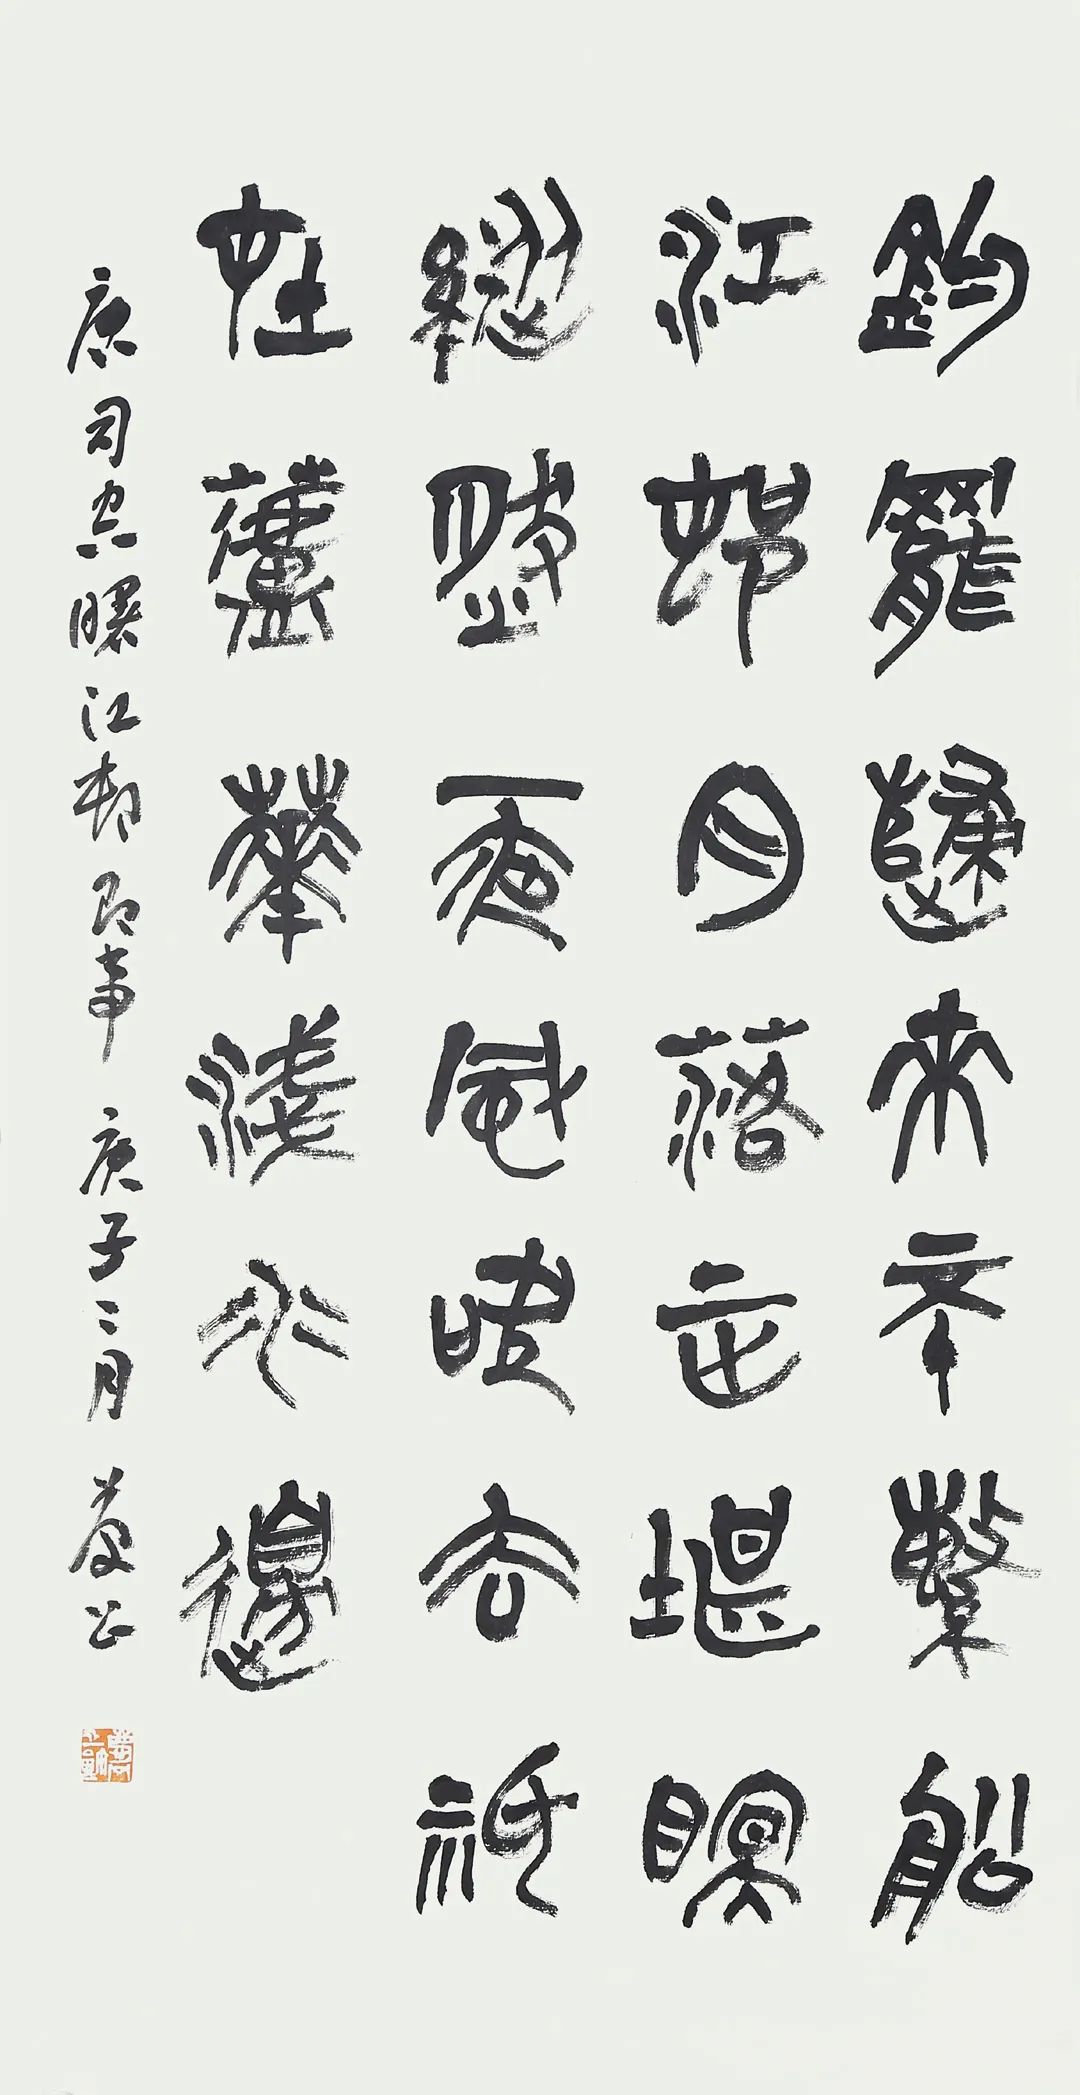 釣罷歸来不繫船
江邨月落正堪瞑
縱然一夜風吹去祇
在蘆華淺水邊
唐司空曙江邨即事 庚子二月